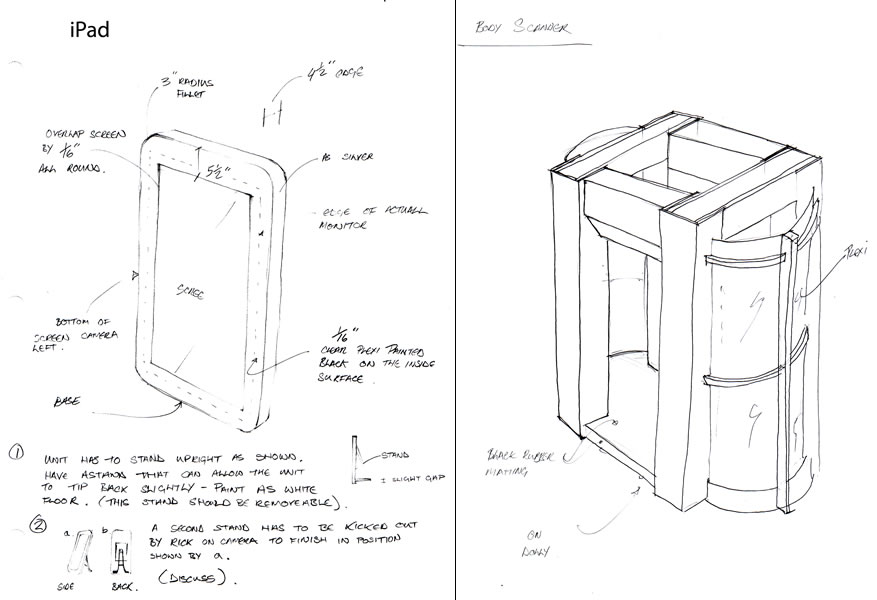 iPad
3" RADIUS
FILLET
4½" EDGE
OVERLAP SCREEN
BY 1/16"
ALL ROUND.
5½"
AS SILVER
EDGE OF ACTUALL
MONITOR
SCREE
BOTTOM OF
SCREEN CAMERA
LEFT.
1/16"
CLEAR PLEXI PAINTED
BLACK ON THE INSIDE
SURFACE.
BASE
① UNIT HAS TO STAND UPRIGHT AS SHOWN.
HAVE A STAND THAT CAN ALLOW THE UNIT
TO TIP BACK SLIGHTLY - PAINT AS WHITE
FLOOR. (THIS STAND SHOULD BE REMOVEABLE).
STAND
SLIGHT GAP
② a b
A SECOND STAND HAS TO BE KICKED OUT
BY RICK ON CAMERA TO FINISH IN POSITION
SHOWN BY a.
(DISCUSS).
SIDE BACK.
BODY SCANNER
PLEXI
BLACK RUBBER
MATTING
ON
DOLLY